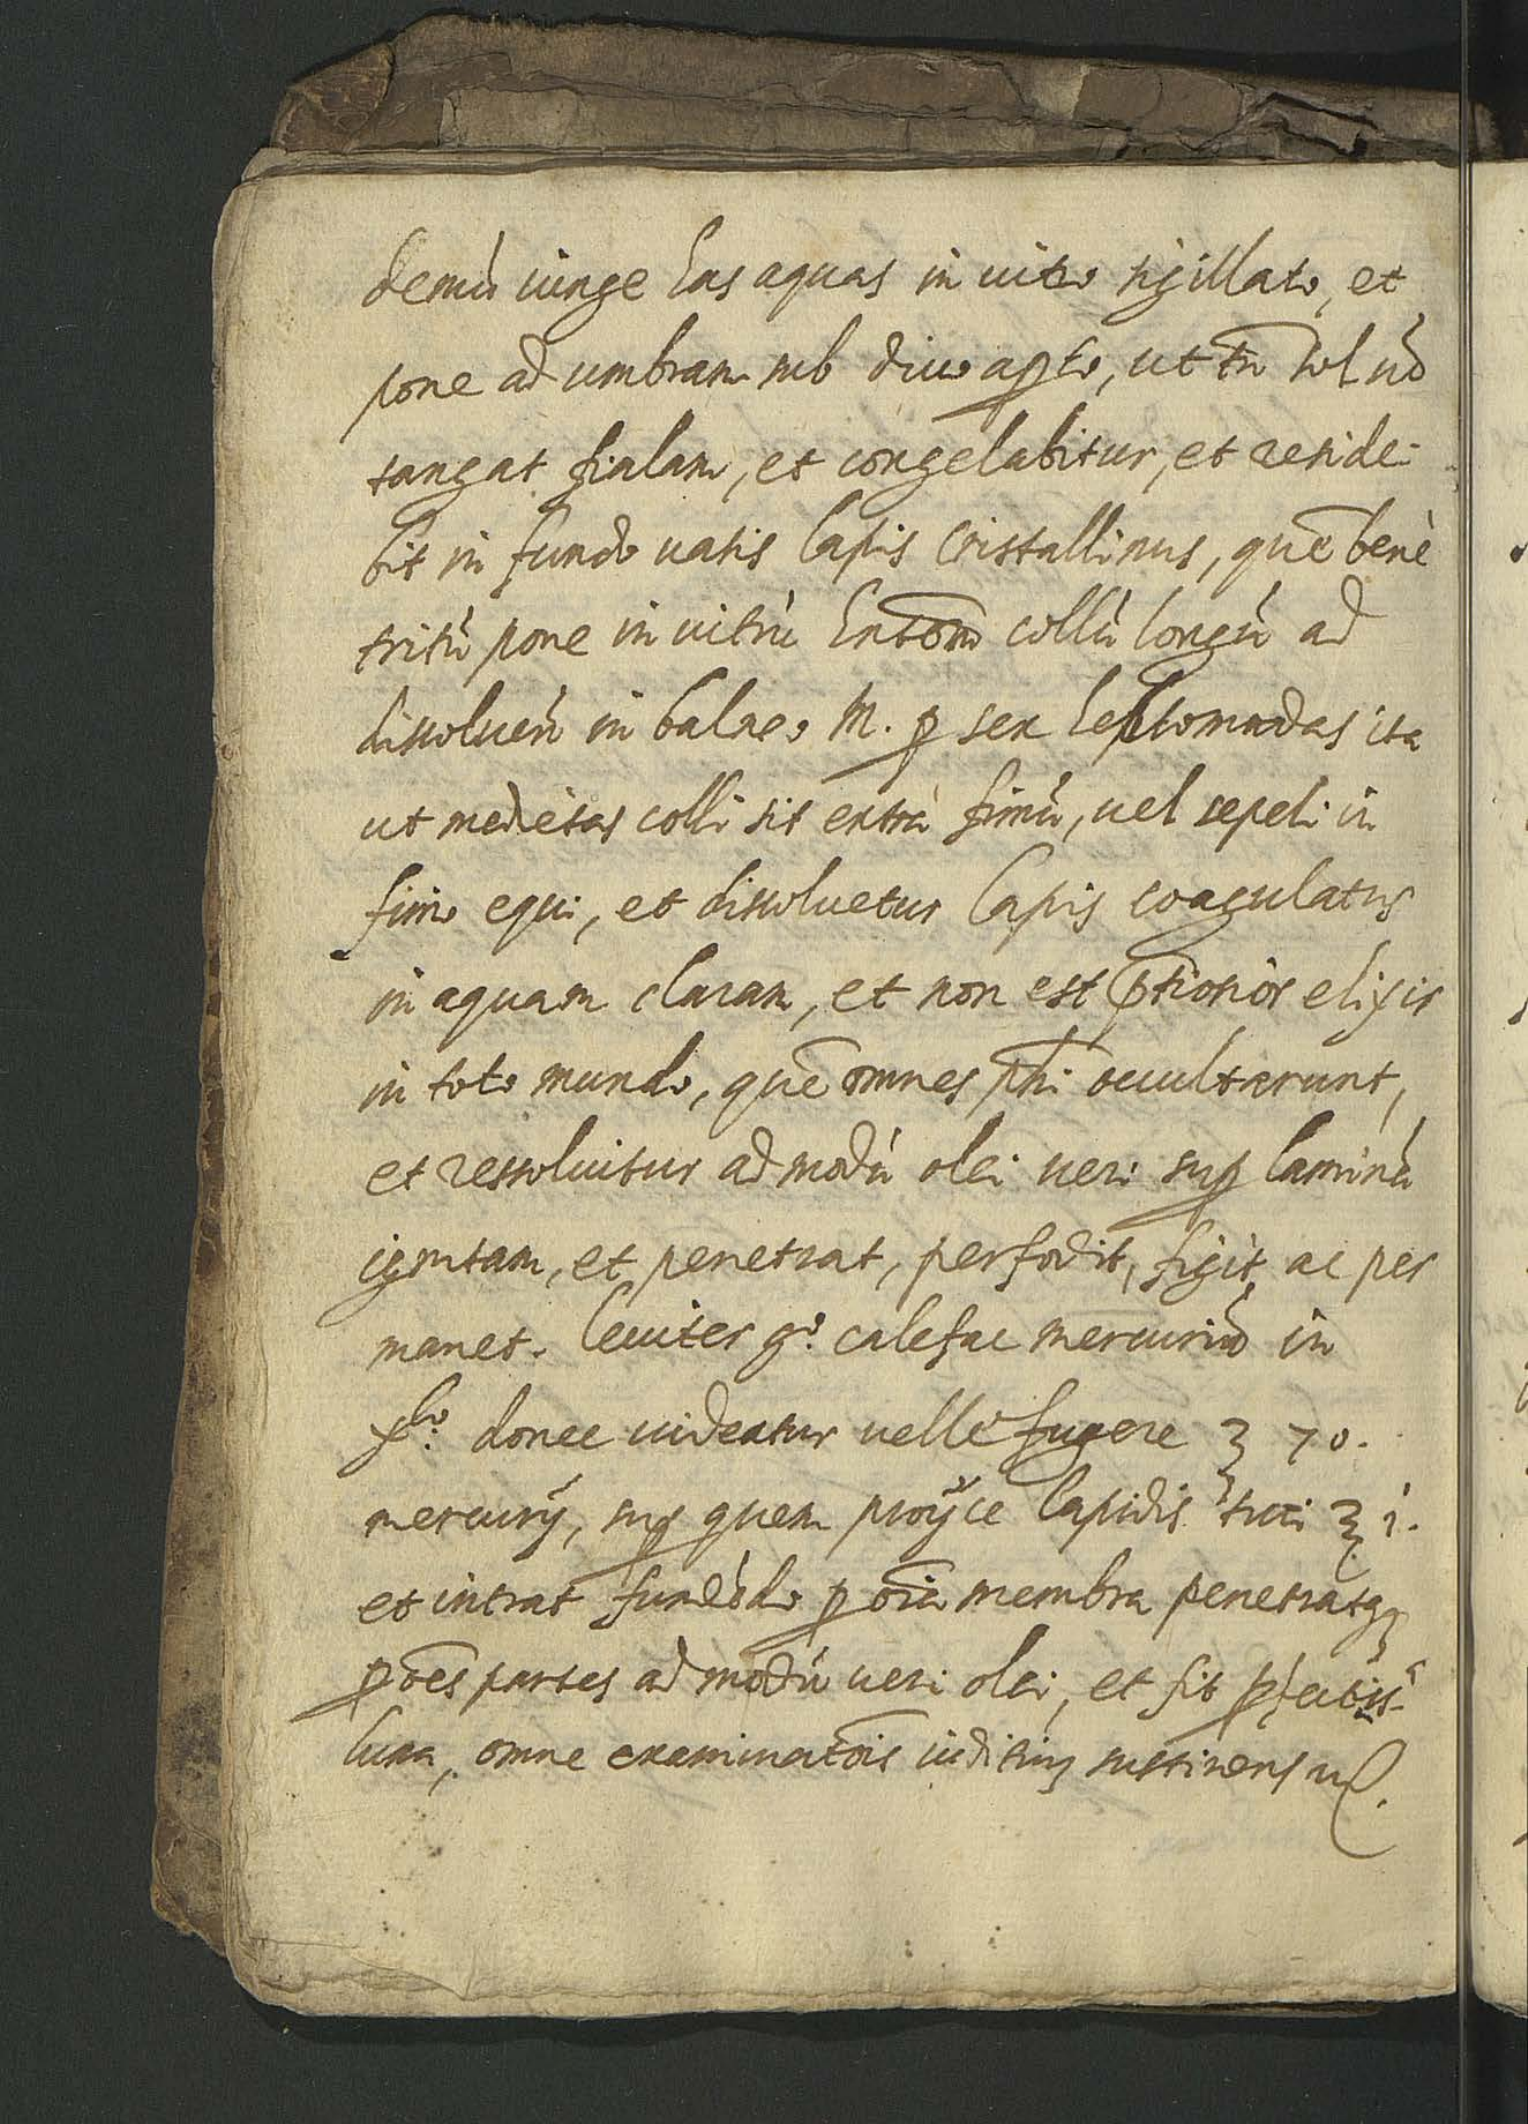 demù iunge has aquas in uitro sigillato, et
pone ad umbram sub diuo apto, ut tñ sol nõ
tangat fialam, et congelabitur, et reside-
bit in fundo uasis lapis cristallinus, quẽ benè
tritù pone in uitrù collù longù ad
dissoluẽ in balneo M. p sex heptomadas ita
ut medietas colli sit extrà fimù, uel sepeli in
fimo equi, et dissoluetur lapis coagulatus
in aquam claram, et non est ptiosiòr elixir
in toto mundo, quẽ omnes phi occultarunt,
et ressoluitur ad modù olei ueri sup laminà
ignitam, et penetrat, perfodit, figit, ac per
manet. leuiter g°. calefac mercuriù in
donec uideatur uelle fugere ℥ 70.
mercurÿ, sup quem proÿce lapidis tui ℥ i.
et intrat fundèdo p oĩa membra penetratq;
p oẽs partes ad modù ueri olei, et fit pfectiss
luna, omne examinatõis iuditiũ sustinens